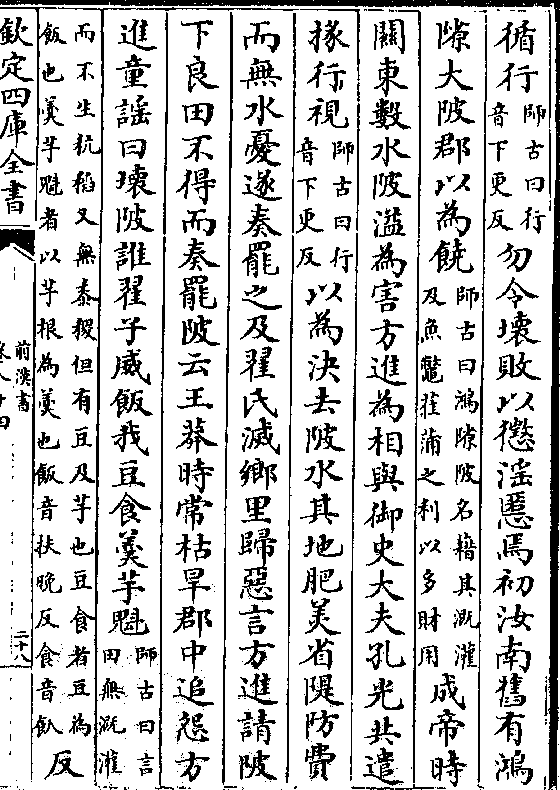 循行師古曰行音下更反勿令壊敗以懲滛慝焉初汝南舊有鴻
隙大陂郡以為饒師古曰鴻隙陂名藉其溉灌及魚鼈萑蒲之利以多財用成帝時
關東數水陂溢為害方進為相與御史大夫孔光共遣
掾行視師古曰行音下更反以為決去陂水其地肥美省隄防費
而無水憂遂奏罷之及翟氏滅鄉里歸惡言方進請陂
下良田不得而奏罷陂云王莽時常枯旱郡中追怨方
進童謡曰壊陂誰翟子威飯我豆食羮芋魁師古曰言田無溉灌
而不生秔稻又無黍稷但有豆及芋也豆食者豆為飯也羮芋魁者以芋根為羮也飯音扶晚反食音飤反
欽定四庫全書
前漢書
卷八十四
二十八